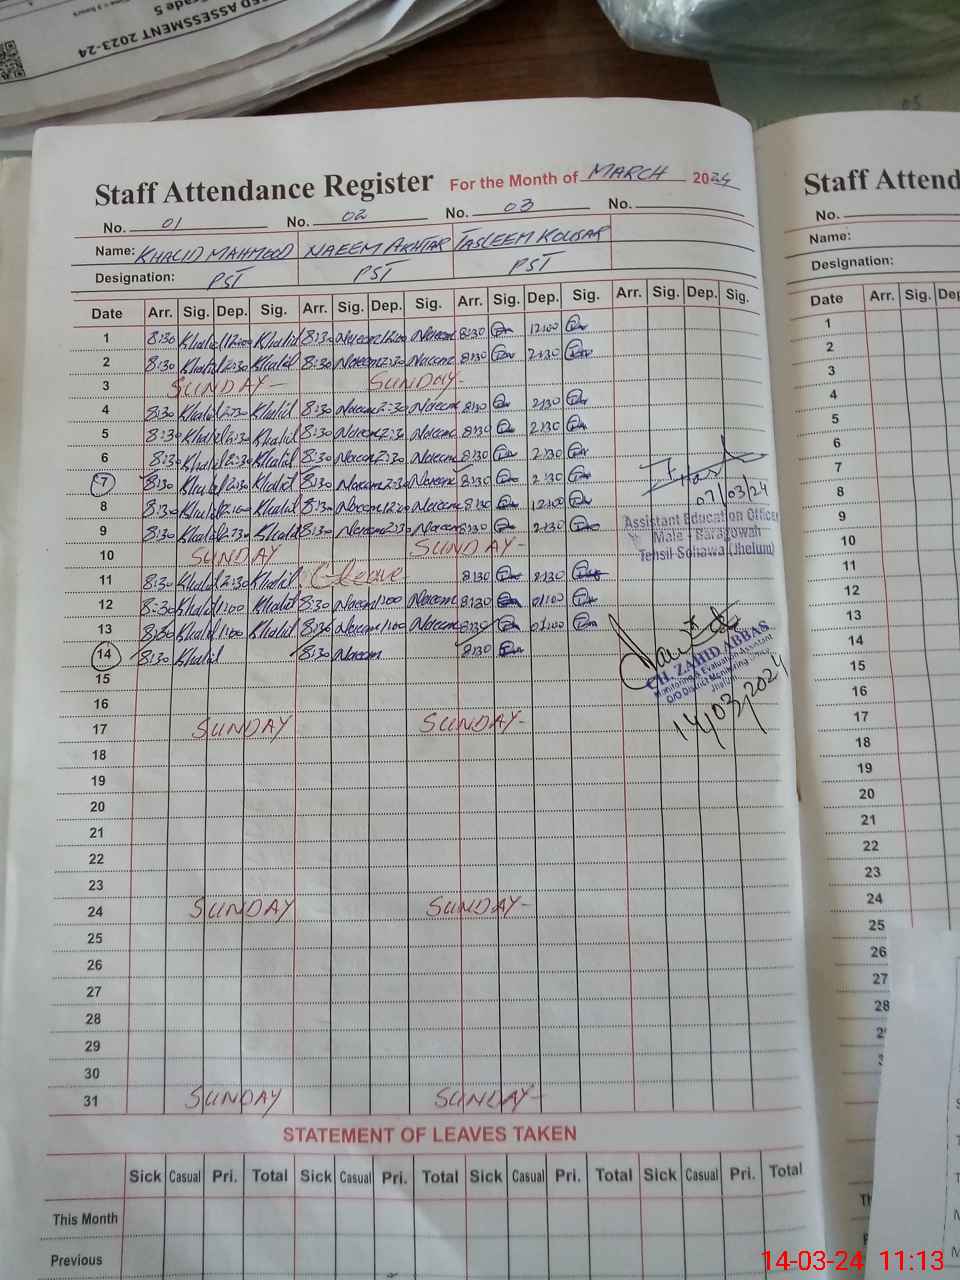 ED ASSESSMENT 2023-24
Grade 5
Staff Attendance Register For the Month of MARCH 2024
No. 01 No. 02 No. 03 No.
Name: KHALID MAHMOOD NAEEM AKHTAR TASLEEM KOUSAR
Designation: PST PST PST
Date Arr. Sig. Dep. Sig. Arr. Sig. Dep. Sig. Arr. Sig. Dep. Sig. Arr. Sig. Dep. Sig.
1 8:30 Khalid 12:00 Khalid 8:30 Naeem 12:00 Naeem 8:30 12:00
2 8:30 Khalid 2:30 Khalid 8:30 Naeem 2:30 Naeem 8:30 2:30
3 SUNDAY- SUNDAY-
4 8:30 Khalid 2:30 Khalid 8:30 Naeem 2:30 Naeem 8:30 2:30
5 8:30 Khalid 2:30 Khalid 8:30 Naeem 2:30 Naeem 8:30 2:30
6 8:30 Khalid 2:30 Khalid 8:30 Naeem 2:30 Naeem 8:30 2:30
7 8:30 Khalid 2:30 Khalid 8:30 Naeem 2:30 Naeem 8:30 2:30
07/03/24
8 8:30 Khalid Khalid 8:30 Naeem 12:00 Naeem 8:30 12:00
9 8:30 Khalid 2:30 Khalid 8:30 Naeem 2:30 Naeem 8:30 2:30
Assistant Education Officer
Male - Baragowah
Tehsil Sohawa (Jhelum)
10 SUNDAY SUNDAY-
11 8:30 Khalid 2:30 Khalid C-leave 8:30 2:30
12 8:30 Khalid 1:00 Khalid 8:30 Naeem 1:00 Naeem 8:30 01:00
13 8:30 Khalid 1:00 Khalid 8:30 Naeem 1:00 Naeem 8:30 01:00
14 8:30 Khalid 8:30 Naeem 8:30
CH. ZAHID ABBAS
Monitoring & Evaluation Assistant
O/O District Monitoring Officer
Jhelum
14/03/2024
15
16
17 SUNDAY SUNDAY-
18
19
20
21
22
23
24 SUNDAY SUNDAY-
25
26
27
28
29
30
31 SUNDAY SUNDAY-
STATEMENT OF LEAVES TAKEN
Sick Casual Pri. Total Sick Casual Pri. Total Sick Casual Pri. Total Sick Casual Pri. Total
This Month
Previous
Staff Attend
No.
Name:
Designation:
Date Arr. Sig. De
1
2
3
4
5
6
7
8
9
10
11
12
13
14
15
16
17
18
19
20
21
22
23
24
25
26
27
28
14-03-24 11:13